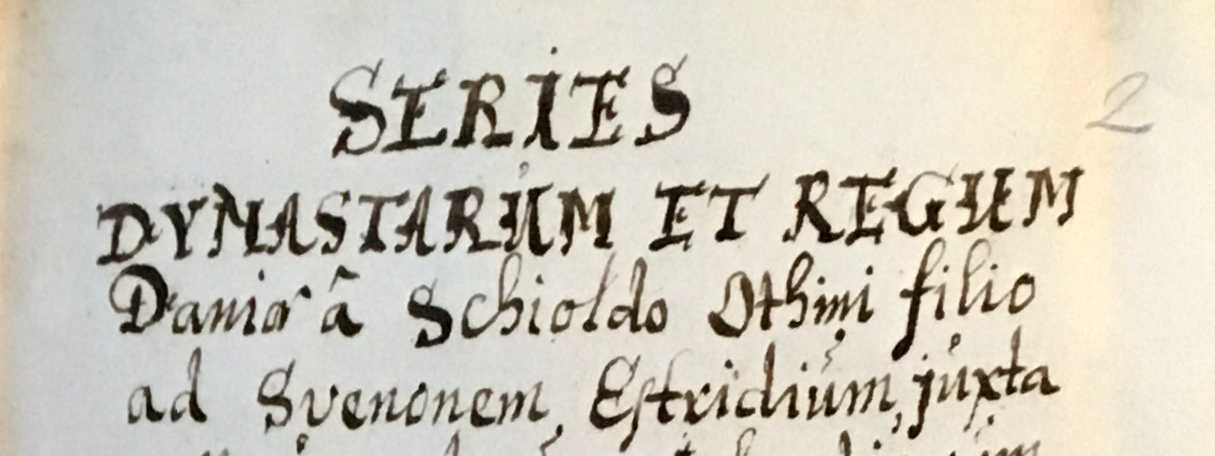 SERIES
2
DYNASTARUM ET REGUM
Daniæ â Schioldo Othini filio
ad Svenonem, Estridium, juxta